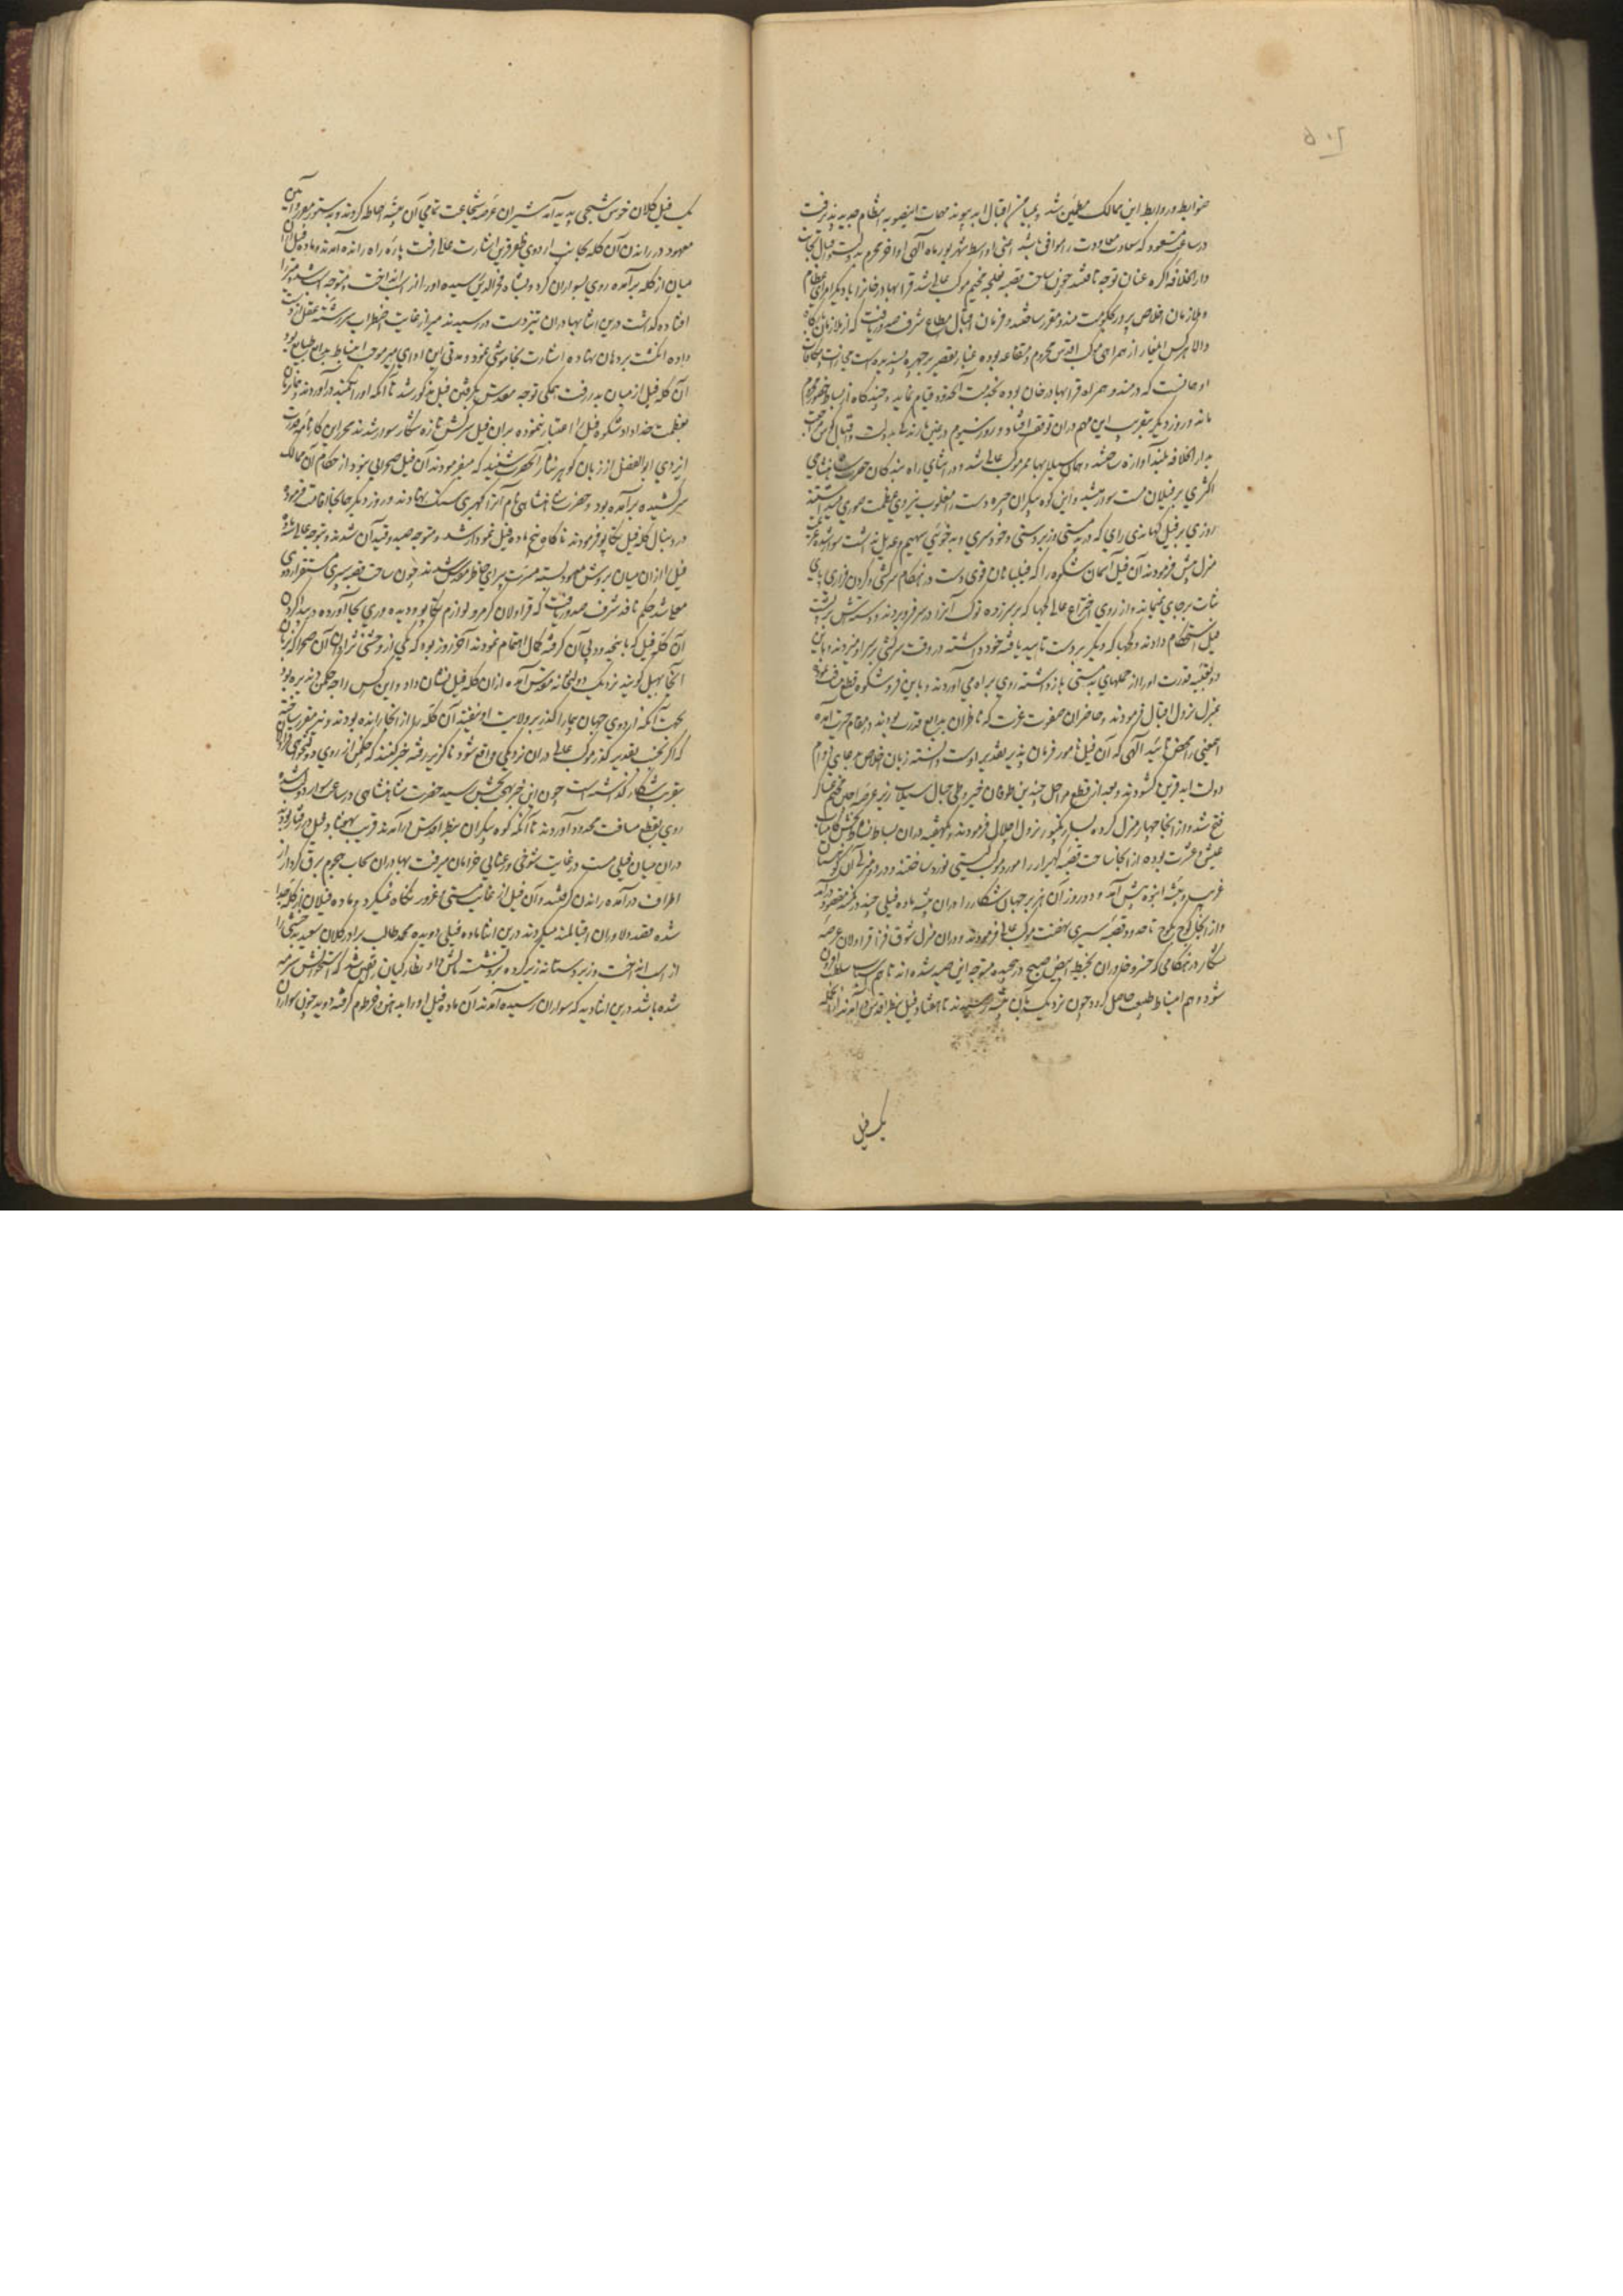 ضوابط و روابط این ممالک مطمئن شد و بمیامن اقبال ابد پیوند مهمات اینصوبه انتظام جدید پذیرفت
در ساعت مسعود که سعادت معاودت را موافق باشد اعنی اواسط شهریور ماه الهی اواخر محرم بدولت و اقبال بجانب
دار الخلافه آگره عنان توجه تافتند چون ساحت قصبه نعلچه مخیم موکب عالی شد قرا بهادر خانرا با دیگر امرای عظام
و ملازمان اخلاص پرور بحکومت مندو مقرر ساختند و فرمان اقبال مطاع شرف صدور یافت که از ملازمان درگاه
والا هر کس از همراهی موکب اقدس محروم و متقاعد بوده غبار تقصیر بر چهره
او آنست که در مندو همراه قرا بهادر خان بوده بخدمت آنحدود قیام نماید و چندگاه از بساط حضور محروم
ماند و روز دیگر بتقریب این مهم در ان توقف افتاد و روز سیوم بدولت و اقبال کوس مراجعت
بدار الخلافه بلند آوازه ساختند و همان سیلابها ممر موکب عالی شد و در اثنای راه بندگان حضرت شاهنشاهی
اکثری بر فیلان مست سوار میشدند و این کوه پیکران چیره دست را مغلوب نیروی عظمت صوری میداشتند
روزی بر فیل کهاندی رای که در بدمستی و زبردستی و خودسری و بدخوئی سهیم و عدیل نداشت سوار شده عزیمت
منزل پیش فرمودند آن فیل آسمان شکوه را که فیلبانان قوی دست در هنگام سرکشی و گردن فرازی پای
ثبات بر جای نماند و از روی اختراع عالی کهبا که بر سر زده نوک آنرا در سر فرو بردند و دستش بر پشت
فیل استحکام دادند و کهبا که دیگر بر دست تایید یافته خود داشته در وقت سرکشی بر سر او میزدند و باین
دو قبضه قدرت اورا از حملهای بدمستی باز داشته روی براه می آوردند و باین فر و شکوه قطع مسافت نموده
بمنزل نزول اقبال فرمودند و حاضران صفوت عزت که ناظران بدایع قدرت بودند در مقام حیرت آمده
اینمعنی را محض تائید الهی که آن فیل مامور فرمان پذیر تقدیر اوست دانسته زبان اخلاص بدعای دوام
دولت ابد قرین گشودند و بعد از قطع مراحل چندین طوفان خیز و طی جبال سیلاب ریز عرصه اجین مخیم عساکر
فتح شد و از آنجا چهار منزل کرده بسارنگپور نزول اجلال فرمودند و یکهفته دران بساط نشاط بخش کامیاب
عیش و عشرت بوده از آنجا ساحت قصبه کهیرار را مورد موکب گیتی نورد ساختند و در دو منزلی آن کوهستان
غریب و بیشه انبوه پیش آمد و دو روز آن هژبر جهان شکار را دران بیشه ماده فیلی چند در کمند مقصود درآمد
و از آنجا کوچ بکوچ تا حدود قصبه سیپری نهضت موکب عالی فرمودند و دران منزل شوق افزا قراولان عرصه
شکار در هنگامی که خسرو خاوران بخیط ابیض صبح در بیشه متوجه این صید شده اند تا هم اسباب سلطنت افزون
شود و هم انبساط طبیعت حاصل گردد چون نزدیک بآن بیشه رسیدند تا هفتاد فیل بنظر اقدس در آمدند از آنجمله
یک فیل
یک فیل کلان خوش شبحی پدید آمد شیران عرصه شجاعت تمامی آن بیشه احاطه کردند و بدستور مقرر و آیین
معهود در راندن آن گله بجانب اردوی ظفر قرین اشارت عالی رفت پاره راه رانده آمدند و ماده فیل ازان
میان از گله برآمده روی بسواران کرد و بشاه فخرالدین رسیده او را از اسب انداخت و متوجه اسب میرزا
افتاده گذشت درین اثنا بهادران تیزدست در رسیدند میر از غایت اضطراب سررشته عقل از دست
داده انگشت بر دهان نهاده اشارت بخاموشی نمود و مدتی این ادای میر موجب انبساط طبایع بود
آن گله فیل از میان بدر رفت همگی توجه مقدس بگرفتن فیل مذکور شد تا آنکه او را بکمند درآوردند و بمقارن
بعظمت خداداد شکوه فیل را اعتبار ننموده بران فیل سرکش تازه شکار سوار شدند محرر این کارنامه قدرت
ایزدی ابوالفضل از زبان گوهر نثار آنحضرت شنید که میفرمودند آن فیل صحرایی نبود از حکام آن ممالک
سر کشیده برآمده بود و حضرت شاهنشاهی نام آنرا سنگ نهادند و روز دیگر جا بجا اقامت فرموده
در دنبال گله فیل تکاپو فرمودند ناگاه پنج ماده فیل نمودار شد و متوجه صید و قید آن شدند و بتوجه عالی
فیل را ازان میان بروش معهود بسته مسرت پیرای خاطر مقدس شدند چون ساحت قصبه سیپری مستقر اردوی
معلی شد حکم نافذ شرف صدور یافت که قراولان گرم رو لوازم تکاپو و دیده وری بجا آورده در پیدا کردن
آن گله فیل که یا بخیه و دو پی آن گرفته کمال اهتمام نمودند آخر روز بود که یکی از وحشی نژادان آن صحرا که بزبان
آنجا بهیل گویند نزدیک دولتخانه مقدس آمده ازان گله فیل نشان داد و این کس راجه جگمن دندیره بود
بجهت آنکه اردوی جهان پیما را گذر بر ولایت او نیفتد آن گله را از آنجا رانده بودند و نیز مقرر ساخته
که اگر بحسب تقدیر گذر موکب عالی دران نزدیکی واقع شود ناگزیر رفته خبر کنند که جگمن از روی دولتخواهی قراولان
بتقریب شکار گذاشته است چون این خبر بهجت بخش رسید حضرت شاهنشاهی در ساعت سوار دولت شده
روی بقطع مسافت محدود آوردند تا آنکه کوه پیکران بنظر اقدس درآمدند قریب بهفتاد فیل در رفتار بودند
دران میان فیلی مست در غایت شوخی و رعنایی خرامان میرفت بهادران سحاب هجوم برق کردار از
اطراف درآمده راندن گرفتند و آن فیل از غایت مستی و غرور نگاه نمیکرد و ماده فیلان از گله جدا
شده بقصد دلاوران اقبالمند میکردند درین اثنا ماده فیلی دویده محمد طالب برادر کلان سعید بدخشی را
از اسب انداخت و زبردستانه زیر کرده بر وی نشست و نظارگیان را یقین شد که استخوانش سرمه
شده باشد درین اثنا دید که سواران رسیده آمدند آن ماده فیل او را بدهن و خرطوم گرفته دوید چون سواران